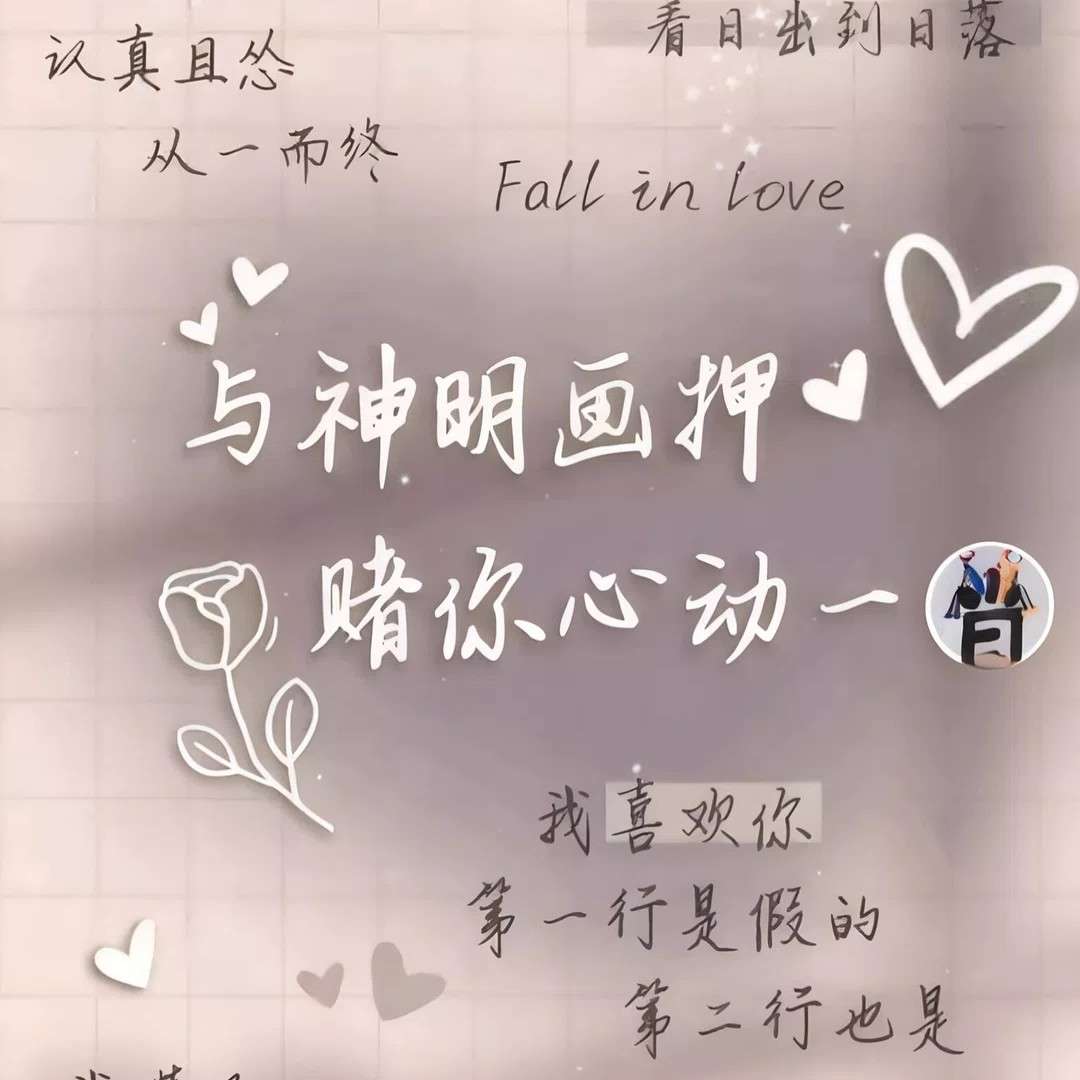 看日出到日落
认真且怂
从一而终
Fall in love
与神明画押
赌你心动一
我喜欢你
第一行是假的
第二行也是